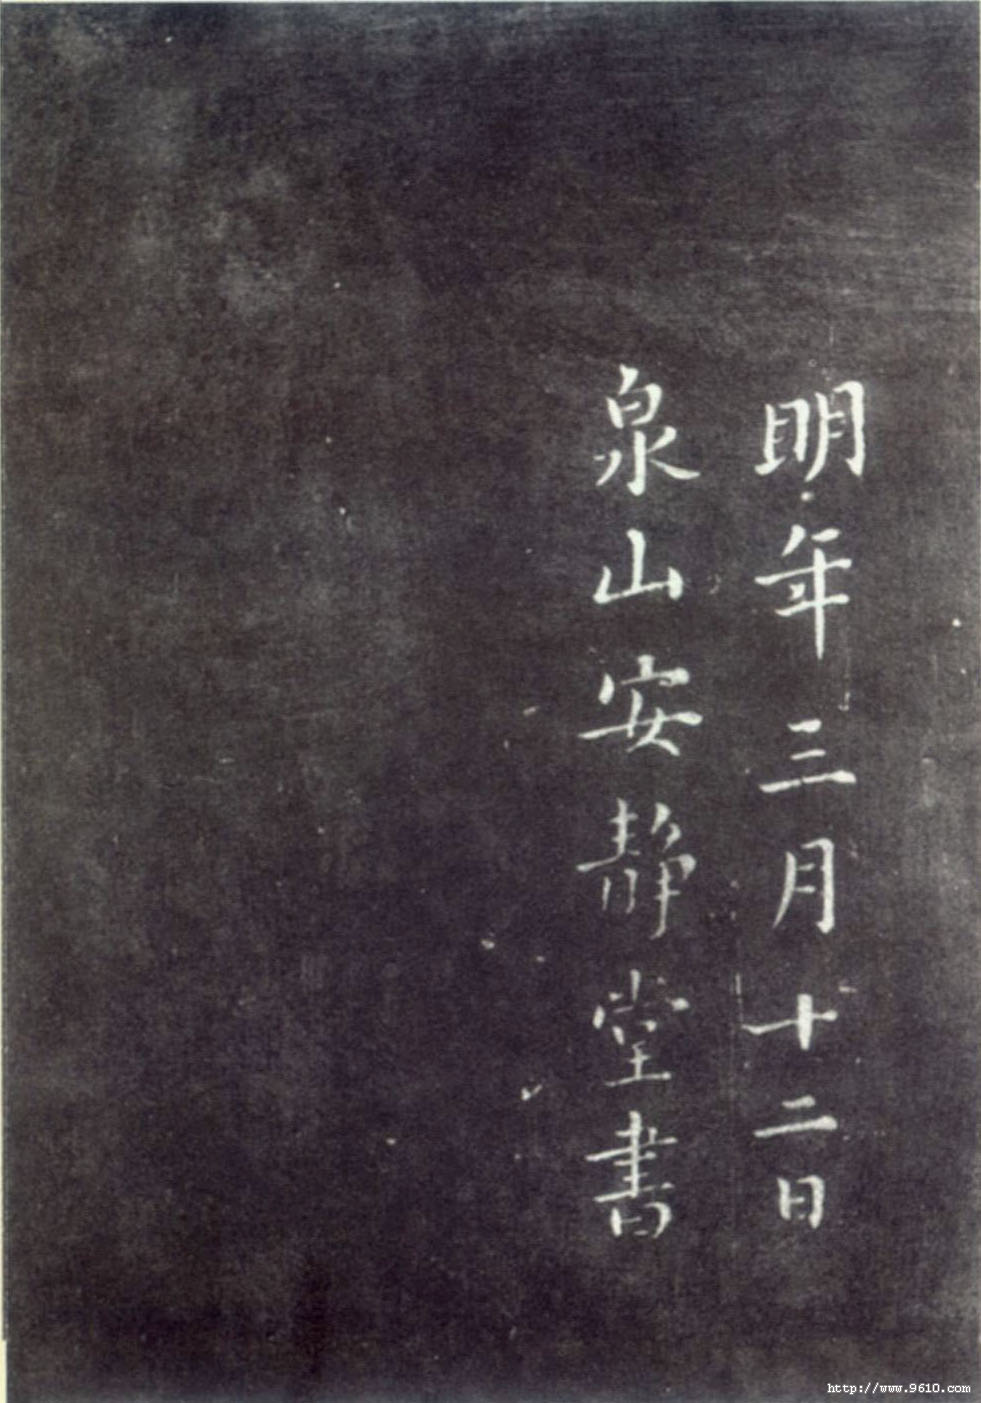 明年三月十二日
泉山安静堂書
http://www.9610.com